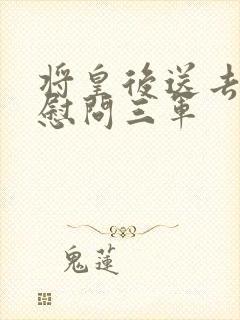 将皇後送去
慰問三軍
鬼蓮